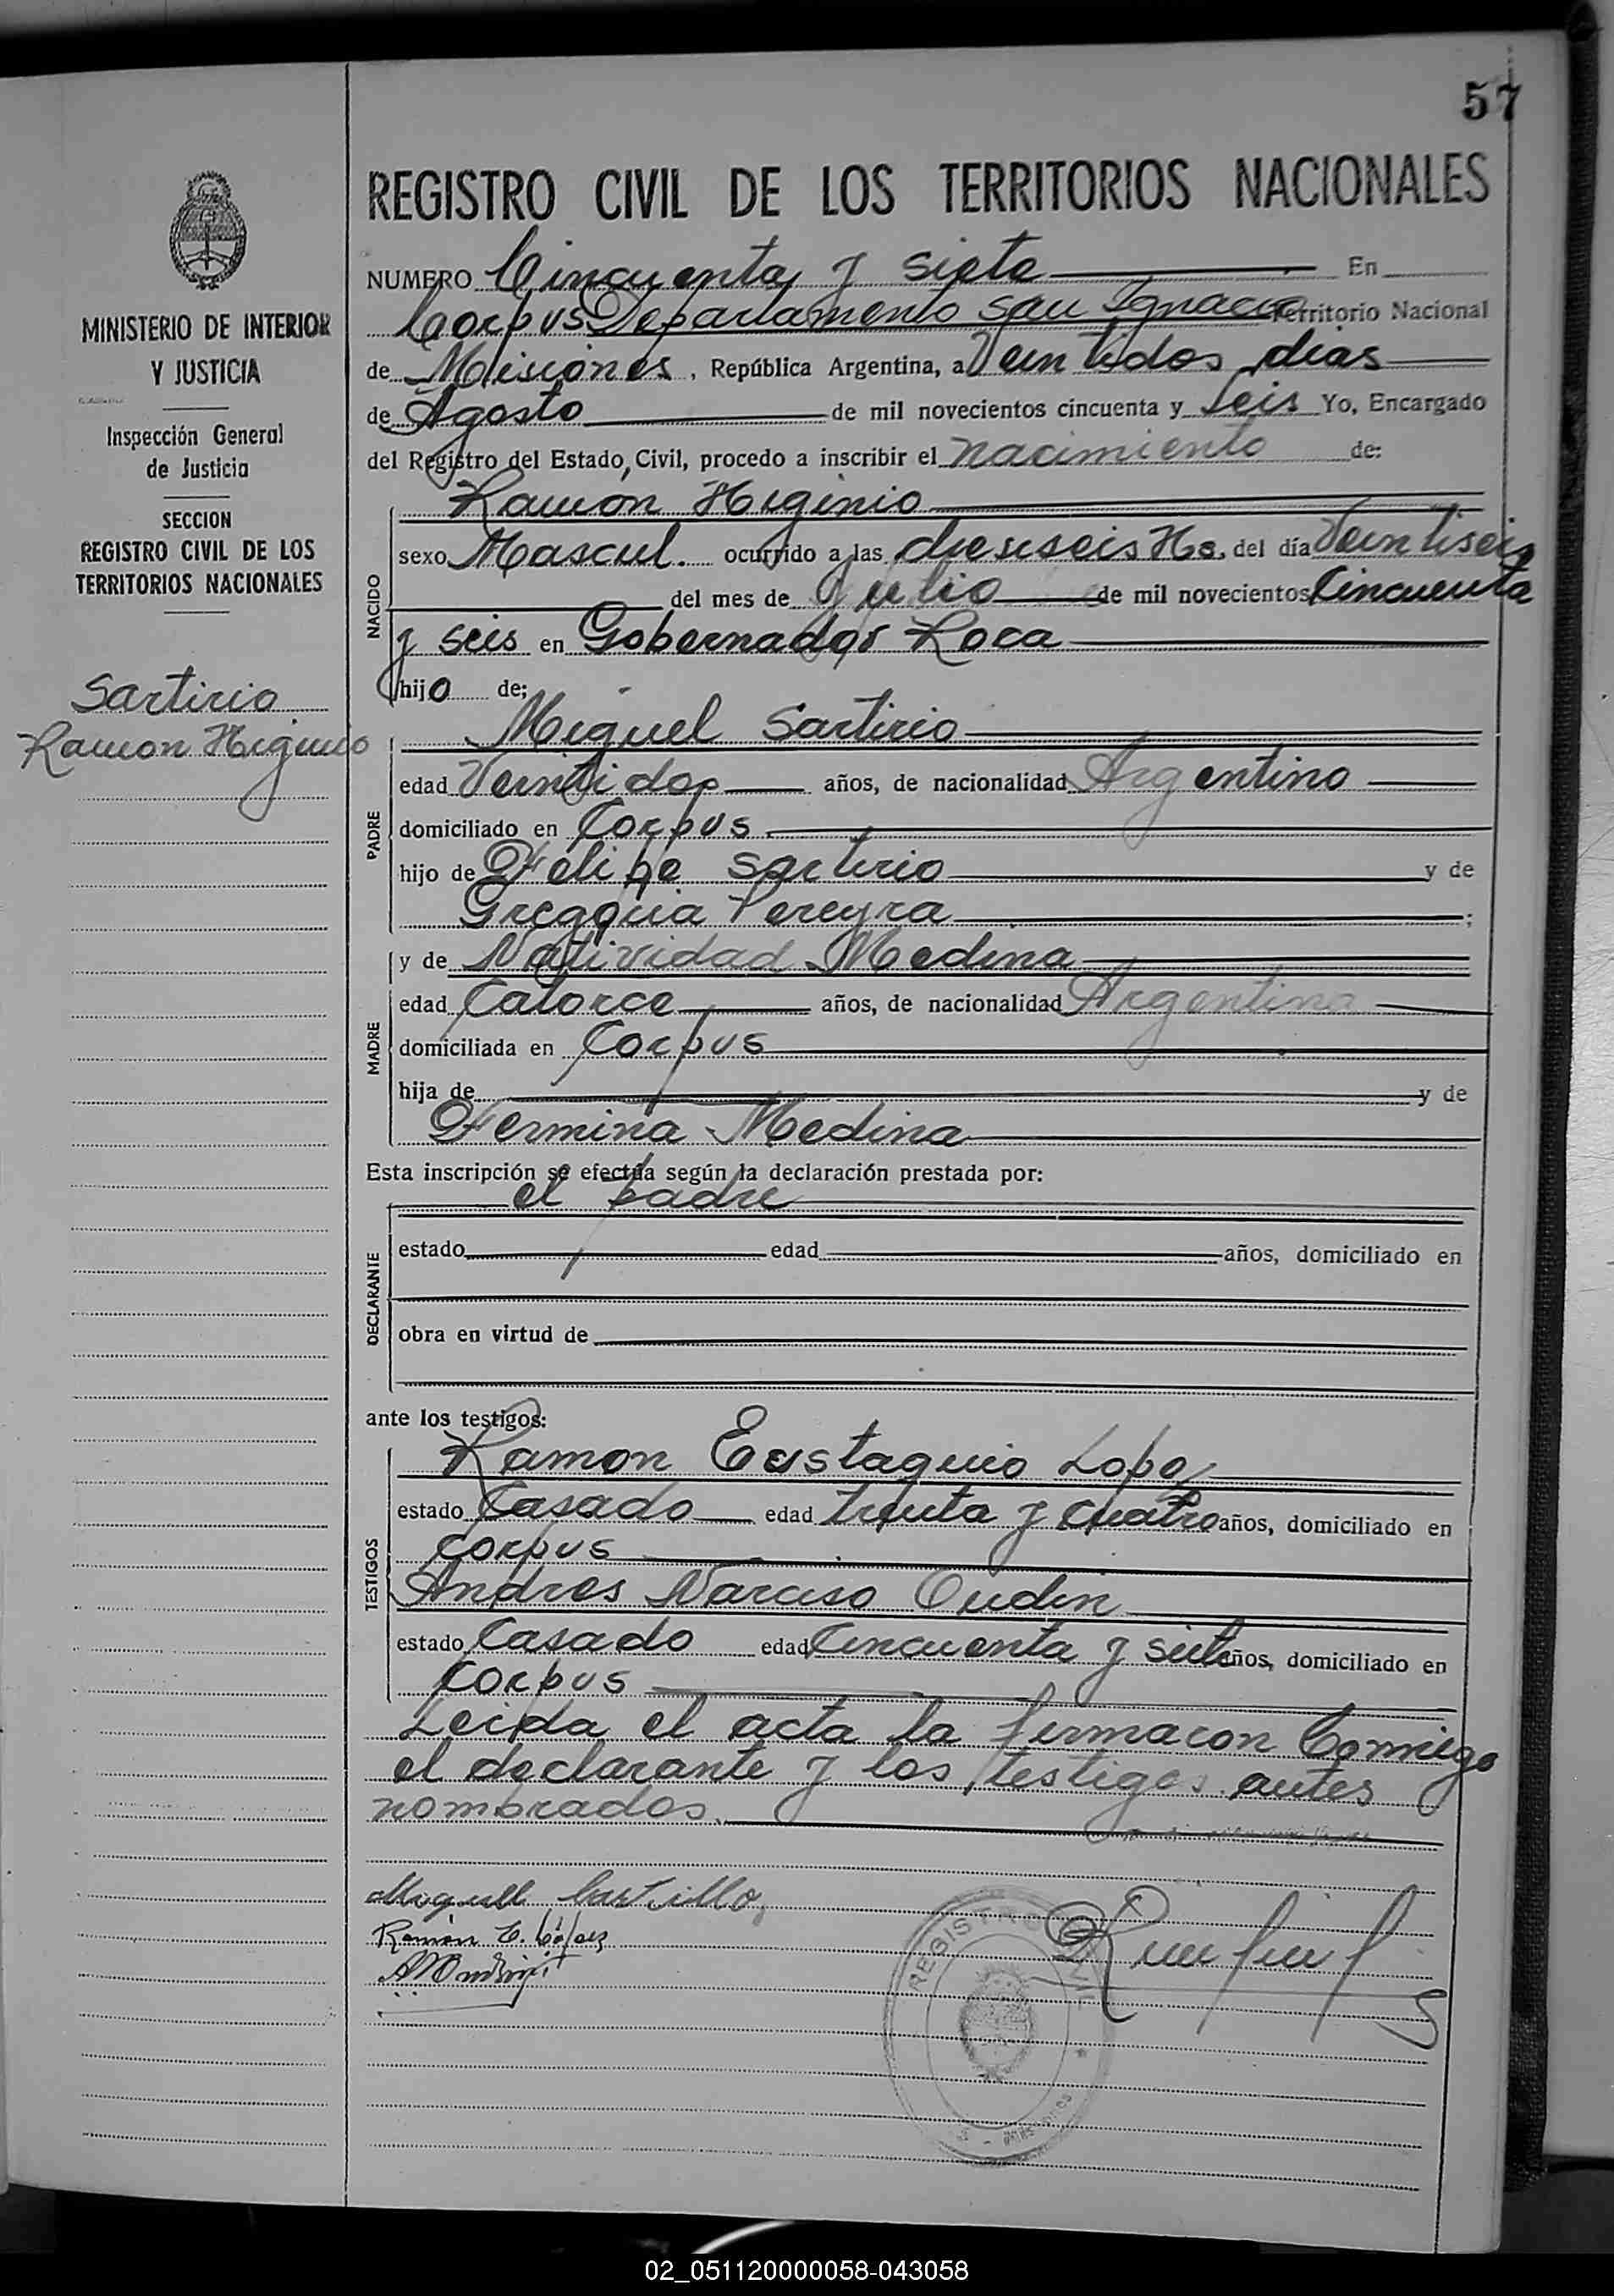 57
REGISTRO CIVIL DE LOS TERRITORIOS NACIONALES
MINISTERIO DE INTERIOR
Y JUSTICIA
Inspección General
de Justicia
SECCION
REGISTRO CIVIL DE LOS
TERRITORIOS NACIONALES
Sartirio
Ramon Higinio
NUMERO Cincuenta y siete En
Corpus Departamento San Ignacio Territorio Nacional
de Misiones, República Argentina, a Veintidos dias
de Agosto de mil novecientos cincuenta y seis Yo, Encargado
del Registro del Estado Civil, procedo a inscribir el nacimiento de:
NACIDO
Ramón Higinio
sexo Mascul. ocurrido a las dieseseis Hs. del día Veintiseis
del mes de Julio de mil novecientos Cincuenta
y seis en Gobernador Roca
hijo de;
PADRE
Miguel Sartirio
edad Veintidos años, de nacionalidad Argentino
domiciliado en Corpus
hijo de Felipe Sartirio y de
Gregoria Pereyra ;
MADRE
y de Natividad Medina
edad Catorce años, de nacionalidad Argentina
domiciliada en Corpus
hija de y de
Fermina Medina
Esta inscripción se efectúa según la declaración prestada por:
DECLARANTE
el padre
estado edad años, domiciliado en
obra en virtud de
ante los testigos:
TESTIGOS
Ramon Eustaquio Lope
estado Casado edad treinta y cuatro años, domiciliado en
Corpus
Andres Narciso Oudin
estado Casado edad Cincuenta y siete años, domiciliado en
Corpus
Leida el acta la firmaron Conmigo
el declarante y los testigos antes
nombrados.
Miguell Sartillo
Ramón E. López
REGISTRO CIVIL
02_051120000058-043058